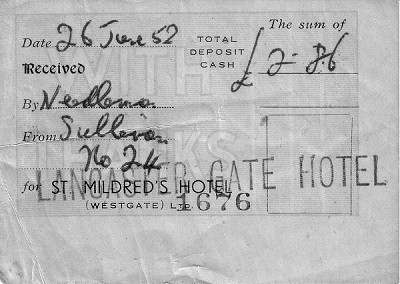 The sum of
Date 26 June 52
TOTAL DEPOSIT CASH
£ 2-
Received
WITH
By Needleman
From Sullivan
No 24
LANCASTER GATE HOTEL
for ST. MILDRED'S HOTEL
(WESTGATE) LTD. 1676